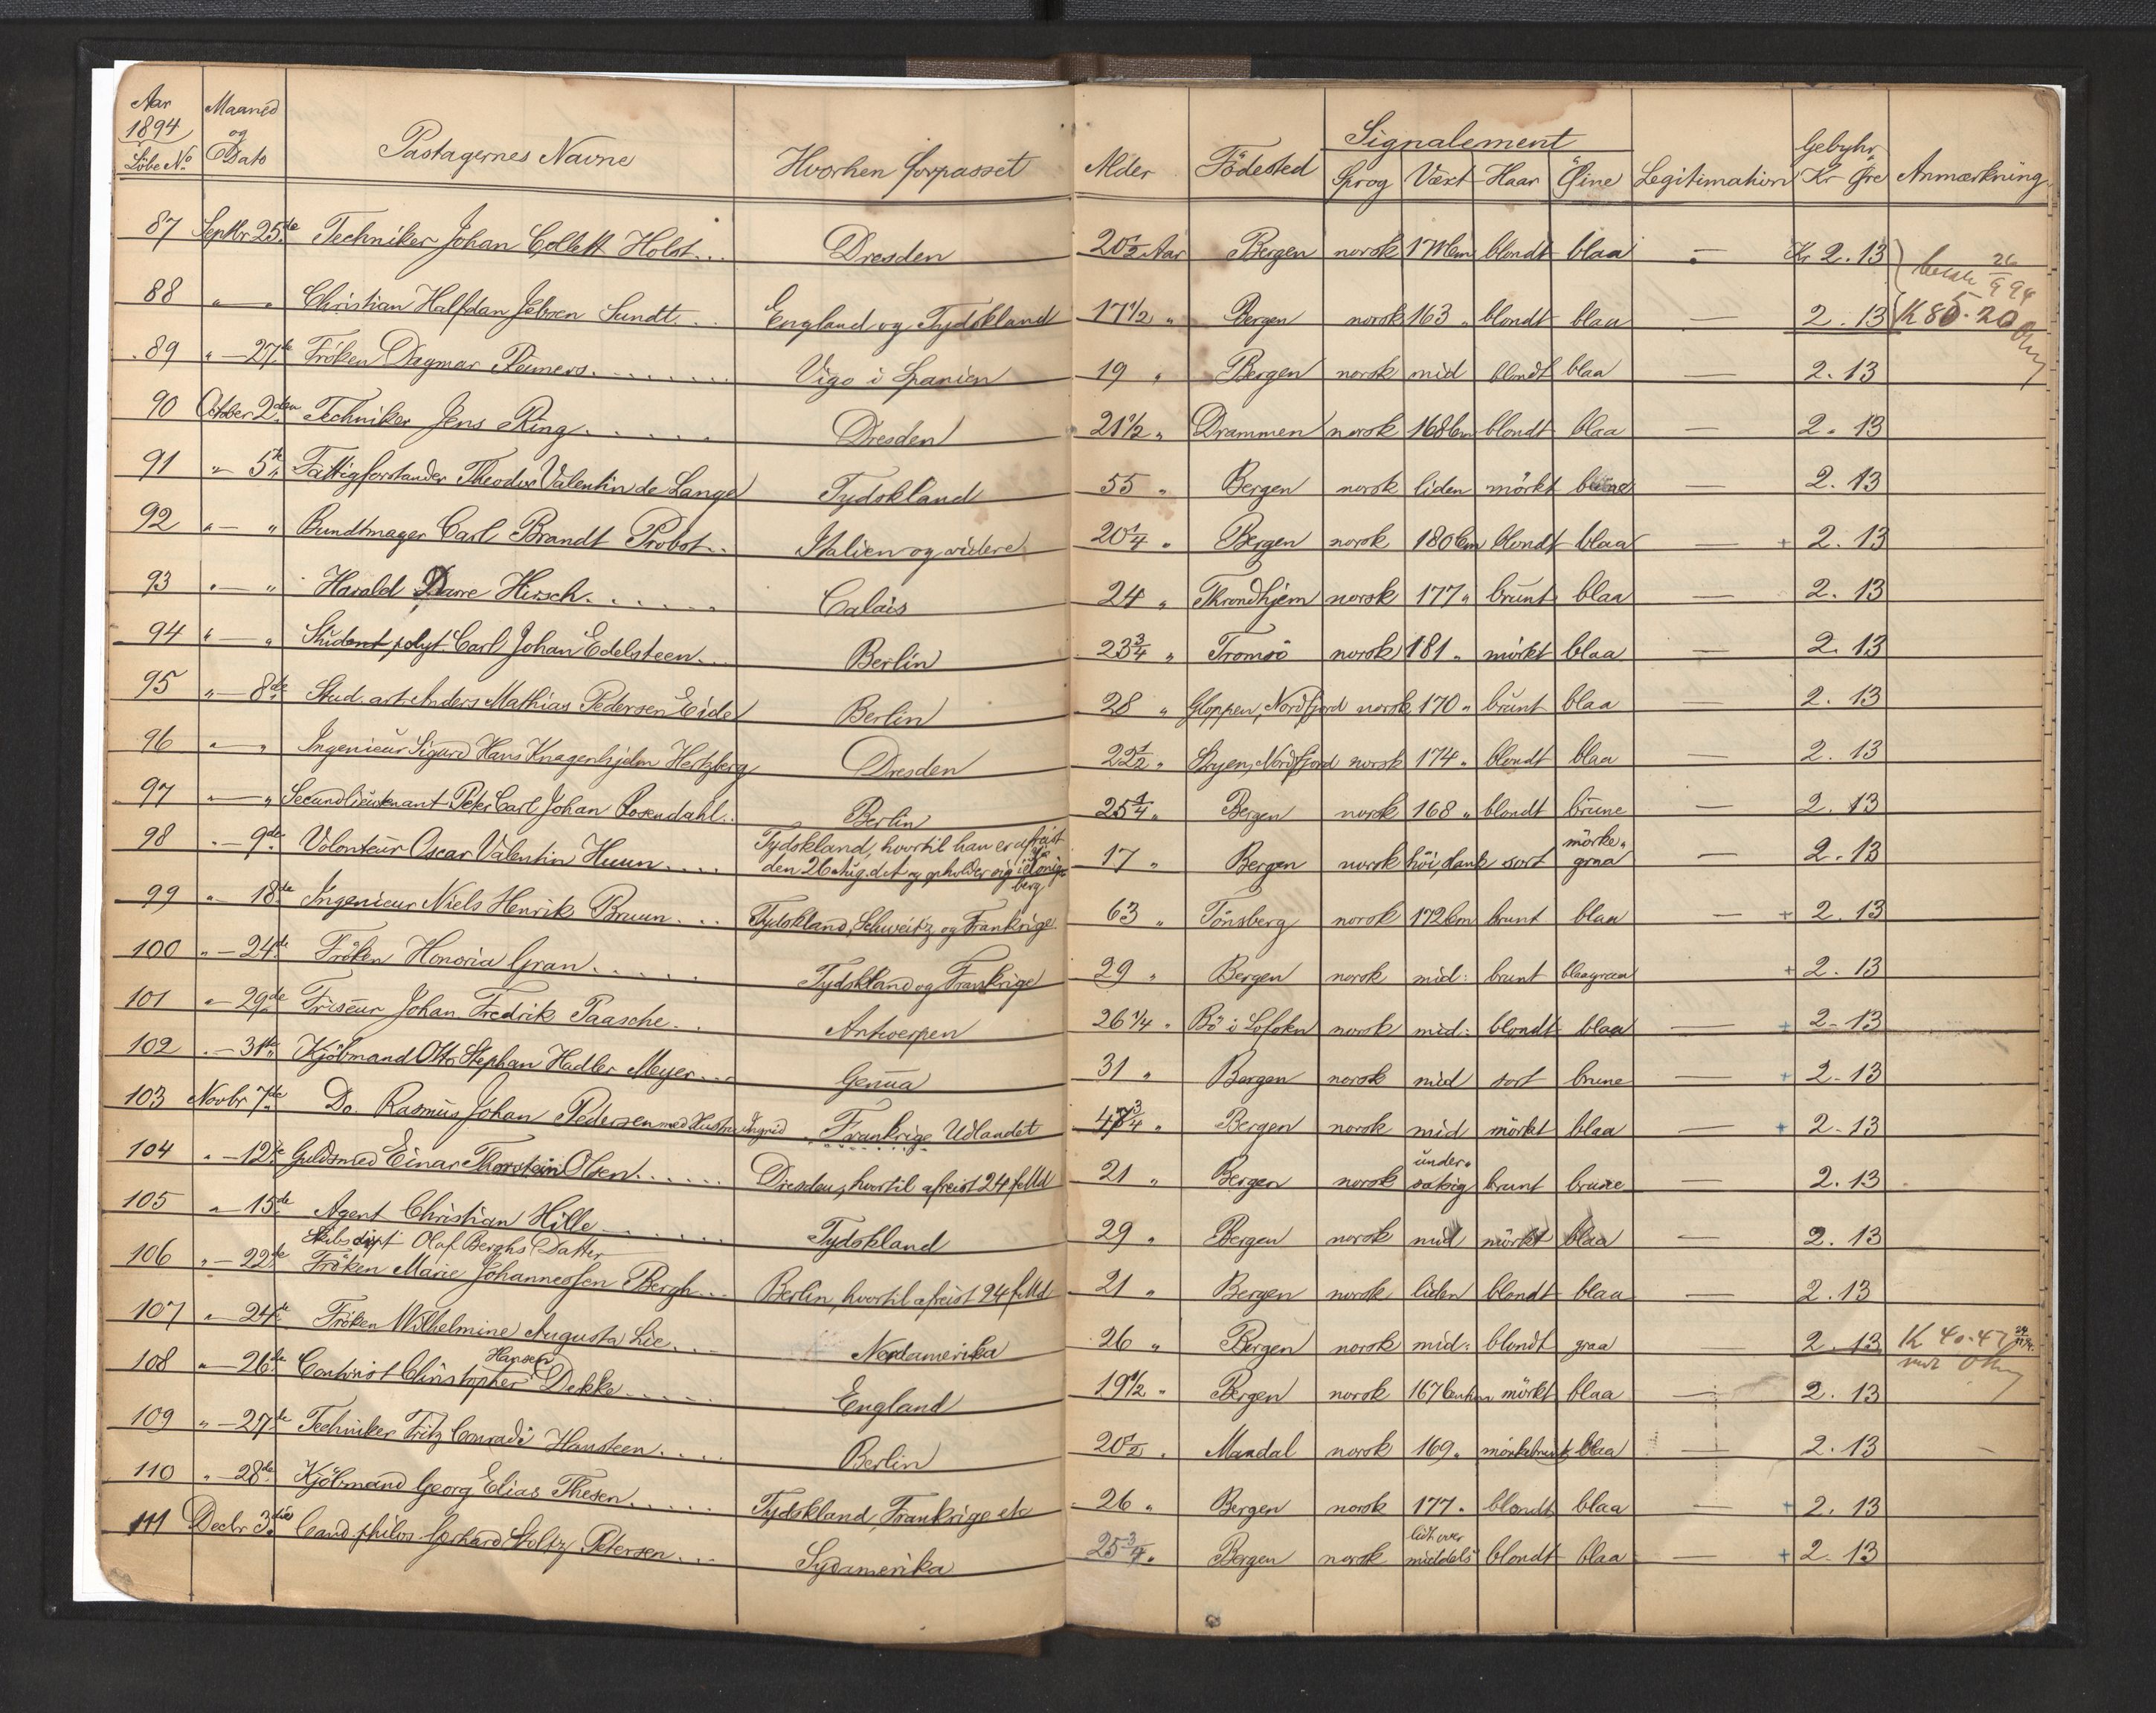 Aar 1894 Löbe No Maaned og Dato Passagernes Navne Hvorhen forpasset Alder Födested Signalement Sprog Væxt Haar Öine Legitimation Gebyhr Kr Øre Anmærkning
87 Septbr 25de Techniker Johan Collett Holst... Dresden 20 1/2 Aar Bergen norsk 171 Cm blondt blaa — Kr 2.13
88 " — " Christian Halfdan Jebsen Sundt... England og Tydskland 17 1/2 " Bergen norsk 163 " blondt blaa — 2.13
89 " — 27de Fröken Dagmar Reimers........ Vigo i Spanien 19 " Bergen norsk mid blondt blaa — 2.13
90 October 2den Techniker Jens Ring...... Dresden 21 1/2 " Drammen norsk 168 Cm blondt blaa — 2.13
91 " — 5te Fattigforstander Theodor Valentin de Lange Tydskland 55 " Bergen norsk liden mörkt brune — 2.13
92 " — " Bundtmager Carl Brandt Probst.. Italien og videre 20 1/4 " Bergen norsk 180 Cm blondt blaa — + 2.13
93 " — " Harald Darre Hirsch...... Calais 24 " Throndhjem norsk 177 " brunt blaa — 2.13
94 " — " Student polyt. Carl Johan Edelsteen... Berlin 23 3/4 " Tromsö norsk 181 " mörkt blaa — 2.13
95 " — 8de Stud. art. Anders Mathias Pedersen Eide Berlin 28 " Gloppen, Nordfjord norsk 170 " brunt blaa — 2.13
96 " — " Ingenieur Sigurd Hans Knagenhjelm Hertzberg Dresden 22 1/2 " Stryen, Nordfjord norsk 174 " blondt blaa — 2.13
97 " — " Secundlieutenant Peter Carl Johan Rosendahl.. Berlin 25 1/4 " Bergen norsk 168 " blondt brune — 2.13
98 " — 9de Volonteur Oscar Valentin Huun.... Tydskland, hvortil han er afreist den 26 Aug. d.A. og opholder sig i Königsberg 17 " Bergen norsk höi, slank sort mörkegraa — 2.13
99 " — 18de Ingenieur Niels Henrik Bruun... Tydskland, Schweitz og Frankrige 63 " Tönsberg norsk 172 Cm brunt blaa — + 2.13
100 " — 24de Fröken Honoria Gran...... Tydskland og Frankrige 29 " Bergen norsk mid: brunt blaagraa + 2.13
101 " — 29de Friseur Johan Fredrik Paasche... Antwerpen 26 1/4 " Bö i Lofoten norsk mid: blondt blaa — + 2.13
102 " — 31te Kjöbmand Otto Stephan Hadler Meyer... Genua 31 " Bergen norsk mid sort brune — + 2.13
103 Novbr 7de Do. Rasmus Johan Pedersen med Hustru Ingrid Frankrige Udlandet 47 3/4 " Bergen norsk mid mörkt blaa — + 2.13
104 " — 12te Guldsmed Einar Thorstein Olsen...... Dresden, hvortil afreist 24 f. Md 21 " Bergen norsk undersatsig brunt brune — 2.13
105 " — 15de Agent Christian Hille...... Tydskland 29 " Bergen norsk mid mörkt blaa — 2.13
Skibsdisp Olaf Berghs Datter
106 " — 22de Fröken Marie Johannessen Bergh... Berlin, hvortil afreist 24 f. Md 21 " Bergen norsk liden blondt blaa — 2.13
107 " — 24de Fröken Wilhelmine Augusta Lie... Nordamerika 26 " Bergen norsk mid: blondt graa — 2.13 K 40.47
108 " — 26de Contorist Christopher Hansen Dekke..... England 19 1/2 " Bergen norsk 167 mörkt blaa — 2.13
109 " — 27de Techniker Fritz Conradi Hansteen.... Berlin 20 1/2 " Mandal norsk 169 " mörkebrunt blaa — 2.13
110 " — 28de Kjöbmand Georg Elias Thesen..... Tydskland, Frankrige etc 26 " Bergen norsk 177 " blondt blaa — + 2.13
111 Decbr 3die Cand. philos. Gerhard Stoltz Petersen... Sydamerika 25 3/4 " Bergen norsk lidt over middels blondt blaa — + 2.13